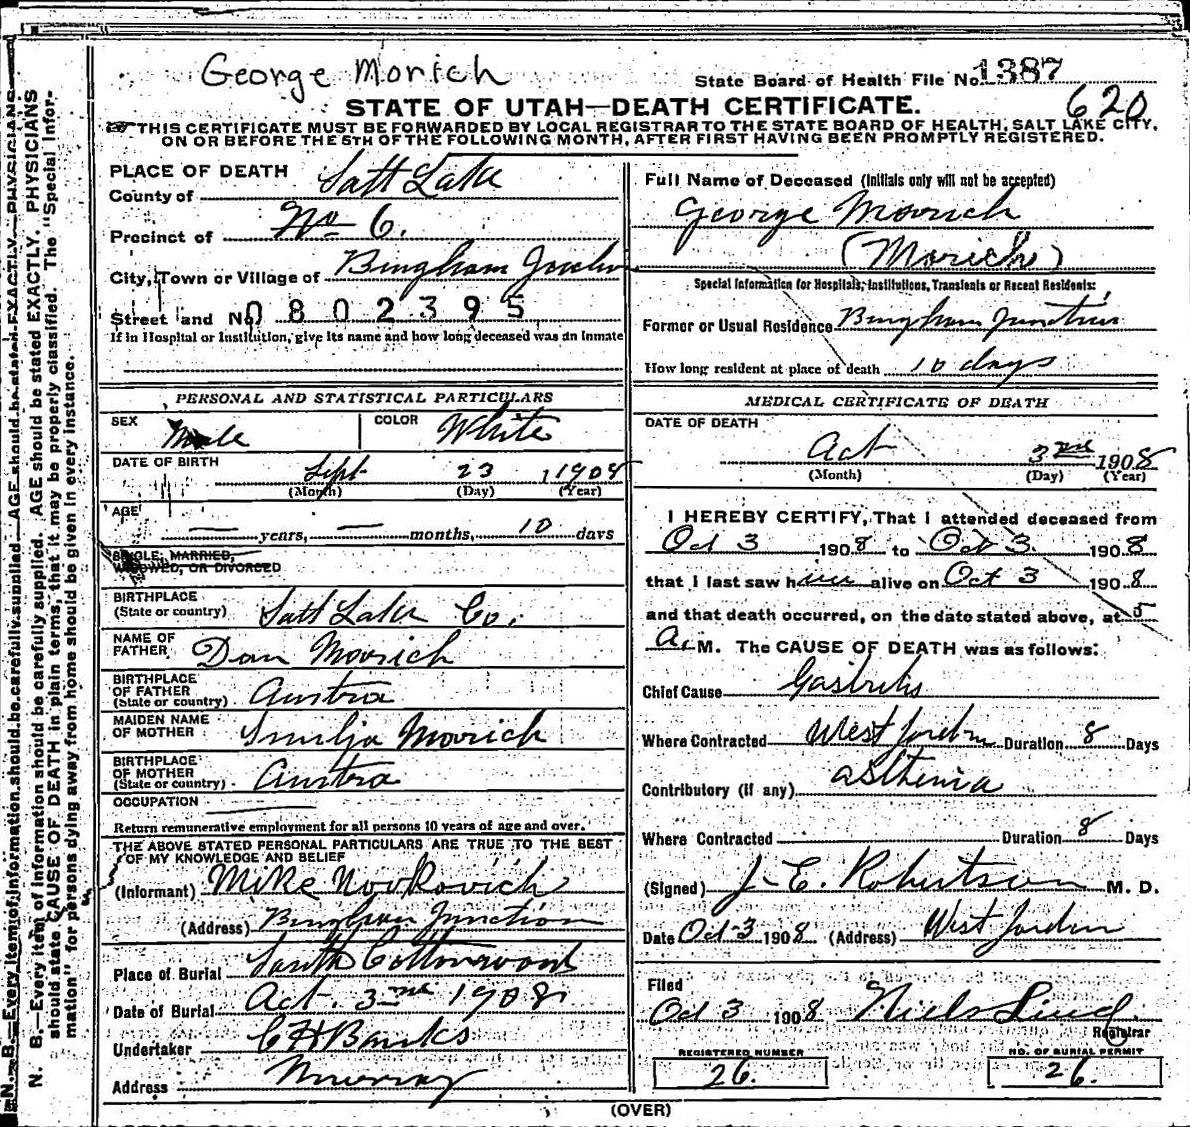 George Morich
State Board of Health File No. 1387
620
STATE OF UTAH—DEATH CERTIFICATE.
THIS CERTIFICATE MUST BE FORWARDED BY LOCAL REGISTRAR TO THE STATE BOARD OF HEALTH, SALT LAKE CITY,
ON OR BEFORE THE 5TH OF THE FOLLOWING MONTH, AFTER FIRST HAVING BEEN PROMPTLY REGISTERED.
N. B.—Every item of information should be carefully supplied. AGE should be stated EXACTLY. PHYSICIANS
should state CAUSE OF DEATH in plain terms, that it may be properly classified. The "Special Infor-
mation" for persons dying away from home should be given in every instance.
PLACE OF DEATH
County of Salt Lake
Precinct of No 6.
City, Town or Village of Bingham Junction
Street and No. 0802395
If in Hospital or Institution, give its name and how long deceased was an inmate
PERSONAL AND STATISTICAL PARTICULARS
SEX Male COLOR White
DATE OF BIRTH Sept 23 1908
(Month) (Day) (Year)
AGE
— years, — months, 10 days
SINGLE, MARRIED,
WIDOWED, OR DIVORCED
BIRTHPLACE
(State or country) Salt Lake Co.
NAME OF
FATHER Dan Movrich
BIRTHPLACE
OF FATHER
(State or country) Austra
MAIDEN NAME
OF MOTHER Smilja Movrich
BIRTHPLACE
OF MOTHER
(State or country) Austra
OCCUPATION
Return remunerative employment for all persons 10 years of age and over.
THE ABOVE STATED PERSONAL PARTICULARS ARE TRUE TO THE BEST
OF MY KNOWLEDGE AND BELIEF
(Informant) Mike Novkovich
(Address) Bingham Junction
Place of Burial South Cottonwood
Date of Burial Oct. 3rd 1908
Undertaker C H Banks
Address Murray
Full Name of Deceased (Initials only will not be accepted)
George Movrich
(Morich)
Special Information for Hospitals, Institutions, Transients or Recent Residents:
Former or Usual Residence Bingham Junction
How long resident at place of death 10 days
MEDICAL CERTIFICATE OF DEATH
DATE OF DEATH
Oct 3rd 1908
(Month) (Day) (Year)
I HEREBY CERTIFY, That I attended deceased from
Oct 3 1908 to Oct 3. 1908
that I last saw him alive on Oct 3 1908
and that death occurred, on the date stated above, at 5
A. M. The CAUSE OF DEATH was as follows:
Chief Cause Gastritis
Where Contracted West Jordan Duration 8 Days
Contributory (if any) asthenia
Where Contracted Duration 8 Days
(Signed) J. E. Robertson M. D.
Date Oct 3 1908 (Address) West Jordan
Filed
Oct 3 1908 Niels Lind
Registrar
REGISTERED NUMBER
26.
NO. OF BURIAL PERMIT
26.
(OVER)